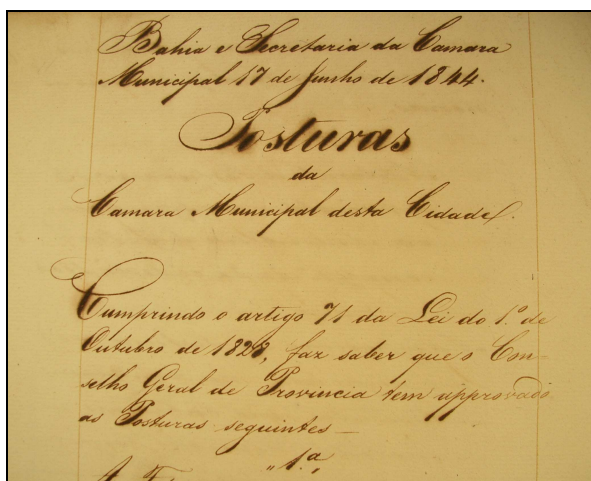 Bahia e Secretaria da Camara
Municipal 17 de Junho de 1844.
Posturas
da
Camara Municipal desta Cidade.
Cumprindo o artigo 71 da Lei do 1.º de
Outubro de 1828, faz saber que o Con-
selho Geral de Provincia tem approvado
as Posturas seguintes —
"1.ª"